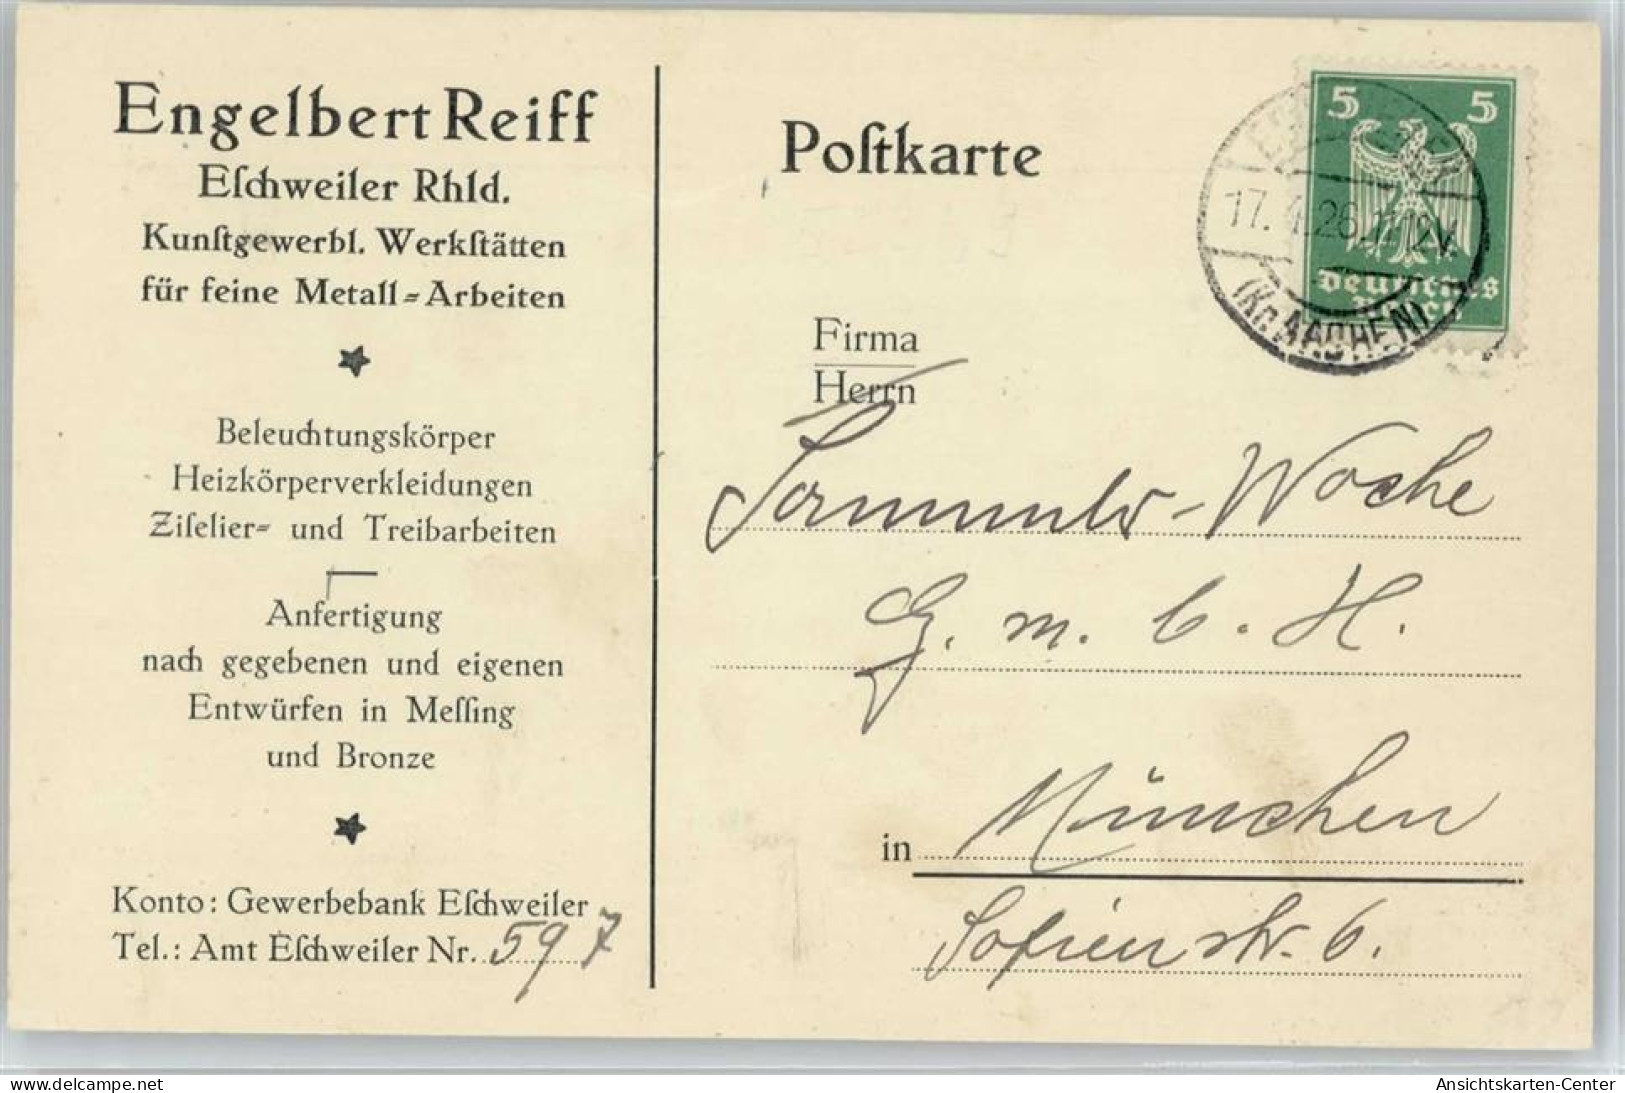 Engelbert Reiff
Eſchweiler Rhld.
Kunſtgewerbl. Werkſtätten
für feine Metall=Arbeiten
Beleuchtungskörper
Heizkörperverkleidungen
Ziſelier= und Treibarbeiten
Anfertigung
nach gegebenen und eigenen
Entwürfen in Meſſing
und Bronze
Konto: Gewerbebank Eſchweiler
Tel.: Amt Eſchweiler Nr. 597
Poſtkarte
5 5
Deutſches
Reich
17. 4. 26. 11-12V
(Kr. AACHEN)
Firma
Herrn
Sammler-Woche
G. m. b. H.
in München
Sofienstr. 6.
delcampe.net
Ansichtskarten-Center